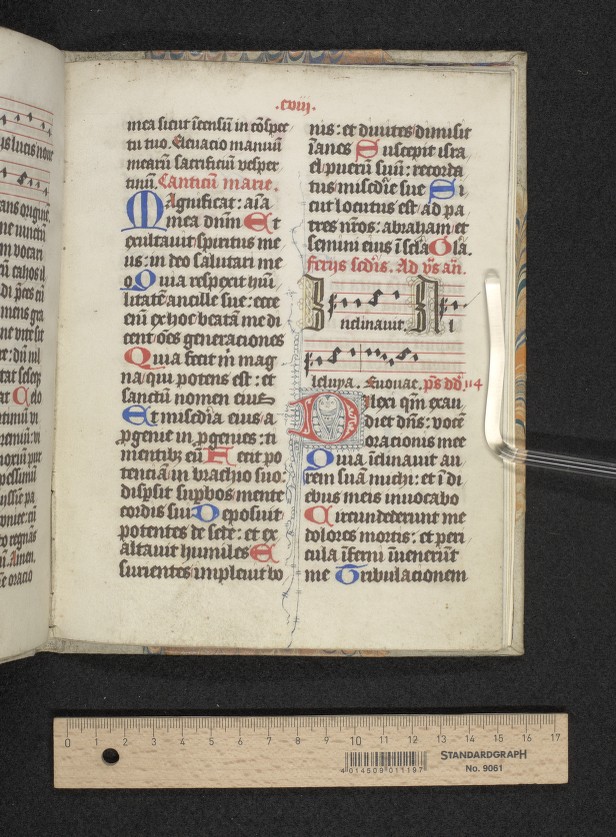 .cviij.
mea sicut ĩcensũ in cõspec
tu tuo. Eleuacio manuũ
mearũ sacrificiũ vesper
tinũ. Canticũ marie.
Magnificat: aĩa
mea dñm Et
exultauit spiritus me
us: in deo salutari me
o Quia respexit hũi
litatẽ ancille sue: ecce
enĩ ex hoc beatã me di
cent oẽs generaciones
Quia fecit m̃ mag
na qui potens est: et
sanctũ nomen eius
Et misc̃dia eius a
ꝓgenie in ꝓgenies: ti
mentibꝫ eũ Fecit po
tenciã in brachio suo:
dispsit supbos mente
cordis sui Deposuit
potentes de sede: et ex
altauit humiles E
surientes impleuit bo
nis: et diuites dimisit
ĩanes Suscepit isra
el puerũ suũ: recorda
tus misc̃die sue Si
cut locutus est ad pa
tres nr̃os: abraham et
semini eius ĩ sc̃la
ferijs sc̃dis. Ad vs̃ añ.
Inclinauit Al
leluya. Euouae. ps̃ dd̃
Dilexi qm̃ exau
diet dñs: vocẽ
oracionis mee
Quia ĩclinauit au
rem suã michi: et ĩ di
ebus meis inuocabo
Circundederunt me
dolores mortis: et peri
cula ĩferni ĩuenerũt
me Tribulacionem
is lucis
di
tat
Amen.
oracio
0 1 2 3 4 5 6 7 8 9 10 11 12 13 14 15 16 17
4 014509 011197
STANDARDGRAPH
No. 9061